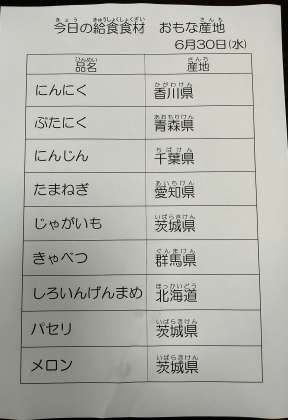 今日の給食食材　おもな産地
6月30日(水)
品名　産地
にんにく　香川県
ぶたにく　青森県
にんじん　千葉県
たまねぎ　愛知県
じゃがいも　茨城県
きゃべつ　群馬県
しろいんげんまめ　北海道
パセリ　茨城県
メロン　茨城県